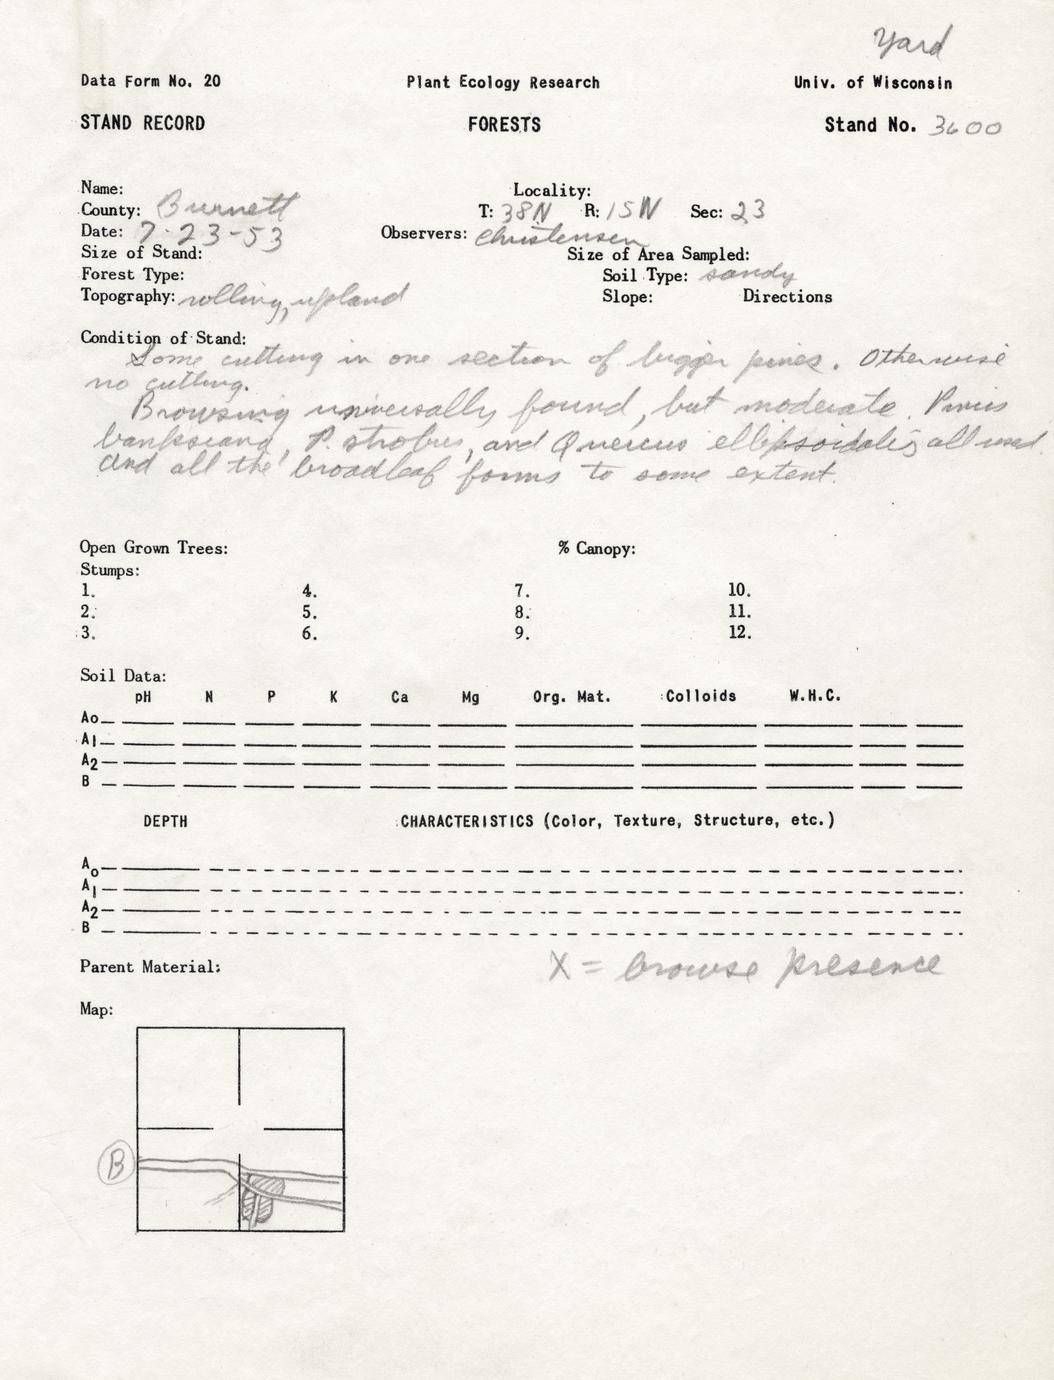 Yard
Data Form No. 20 Plant Ecology Research Univ. of Wisconsin
STAND RECORD FORESTS Stand No. 3600
Name: Locality:
County: Burnett T: 38N R: 15W Sec: 23
Date: 7-23-53 Observers: Christensen
Size of Stand: Size of Area Sampled:
Forest Type: Soil Type: sandy
Topography: rolling, upland Slope: Directions
Condition of Stand:
Some cutting in one section of bigger pines. Otherwise
no cutting.
Browsing universally found, but moderate. Pinus
banksiana, P. strobus, and Quercus ellipsoidalis all used.
and all the broadleaf forms to some extent.
Open Grown Trees: % Canopy:
Stumps:
1. 4. 7. 10.
2. 5. 8. 11.
3. 6. 9. 12.
Soil Data:
pH N P K Ca Mg Org. Mat. Colloids W.H.C.
Ao
A1
A2
B
DEPTH CHARACTERISTICS (Color, Texture, Structure, etc.)
Ao
A1
A2
B
Parent Material: X = browse presence
Map:
B